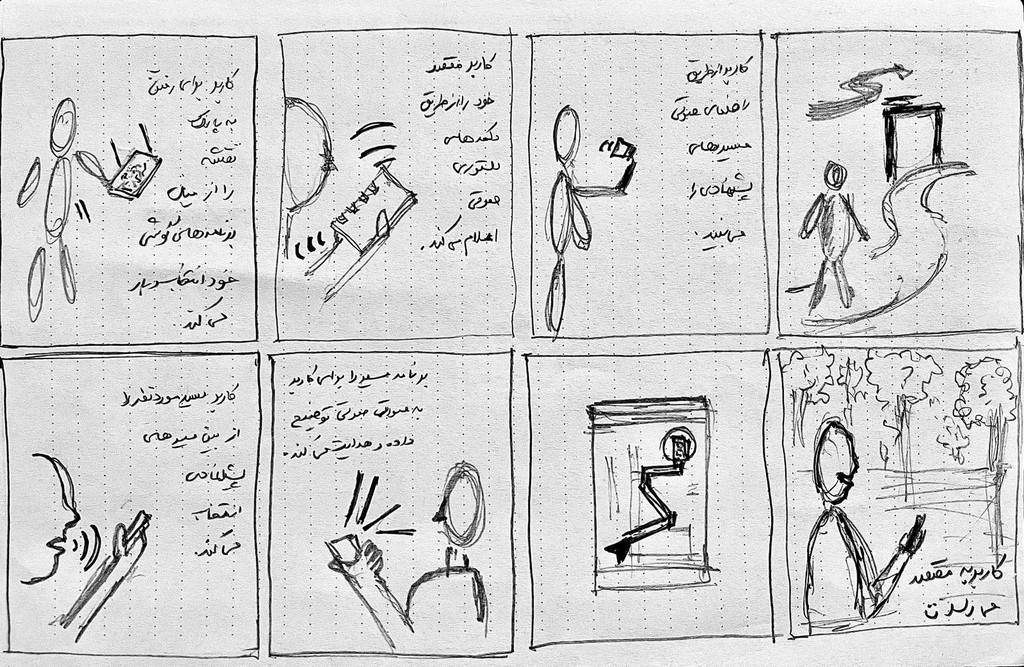 کاربر برای رفتن
به پارک
نقشه
را از میان
برنامه‌های گوشی
خود انتخاب و باز
می‌کند.
کاربر مقصد
خود را از طریق
دکمه‌های
صوتی
اعلام می‌کند.
کاربر از طریق
راهنمای صوتی
مسیرهای
پیشنهادی را
می‌بیند.
کاربر مسیر مورد نظر را
از بین مسیرهای
پیشنهادی
انتخاب
می‌کند.
برنامه مسیر را برای کاربر
به صورت صوتی توضیح
داده و هدایت می‌کند.
کاربر به مقصد